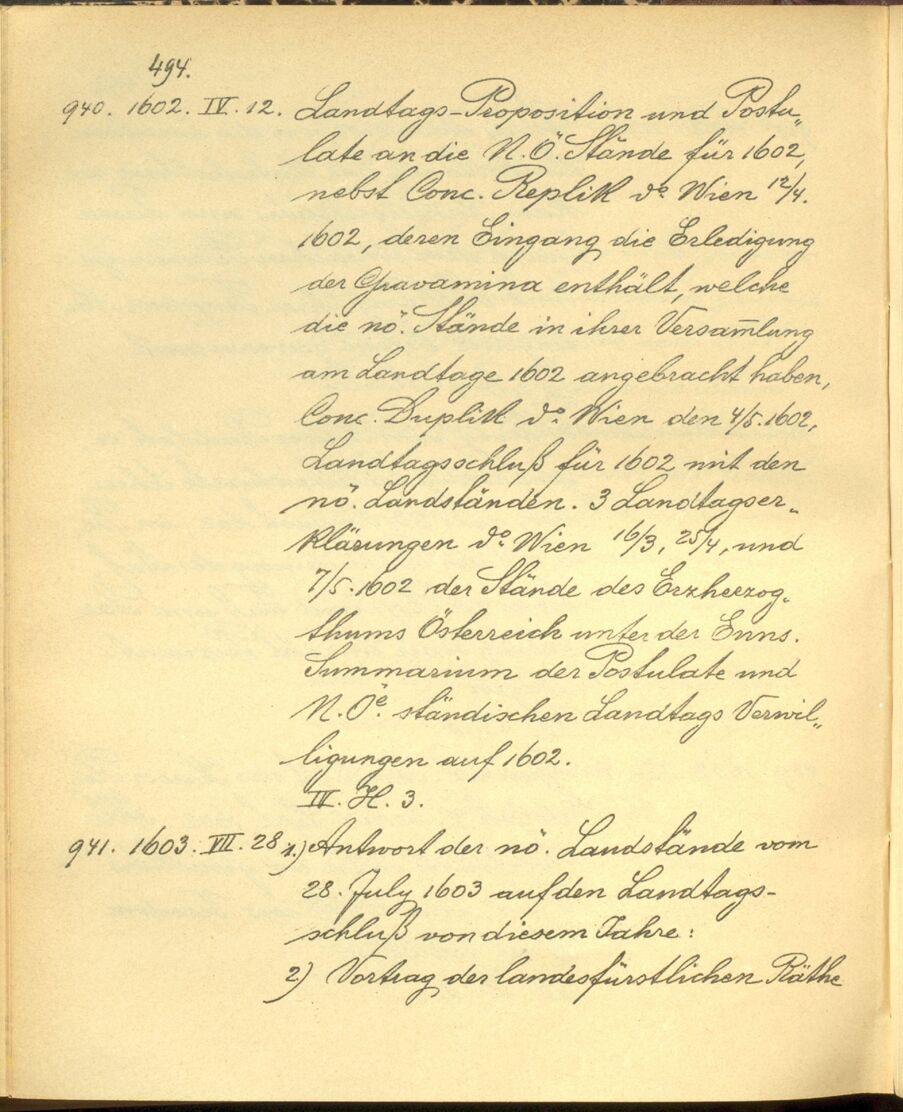 494.
940. 1602. IV. 12. Landtags-Proposition und Postu„
late an die N.Ö. Stände für 1602,
nebst Conc. Replik do. Wien 12/4.
1602, deren Eingang die Erledigung
der Gravamina enthält, welche
die nö. Stände in ihrer Versam̄lung
am Landtage 1602 angebracht haben,
Conc. Duplik do. Wien den 4/5. 1602,
Landtagsschluß für 1602 mit den
nö. Landständen. 3 Landtagser„
klärungen do. Wien 16/3, 25/4, und
7/5. 1602 der Stände des Erzherzog„
thums Österreich unter der Enns.
Summarium der Postulate und
N.Öe. ständischen Landtags Verwil„
ligungen auf 1602.
IV. H. 3.
941. 1603. VII. 28 1.) Antwort der nö. Landstände vom
28. July 1603 auf den Landtags-
schluß von diesem Jahre:
2) Vortrag der landesfürstlichen Räthe